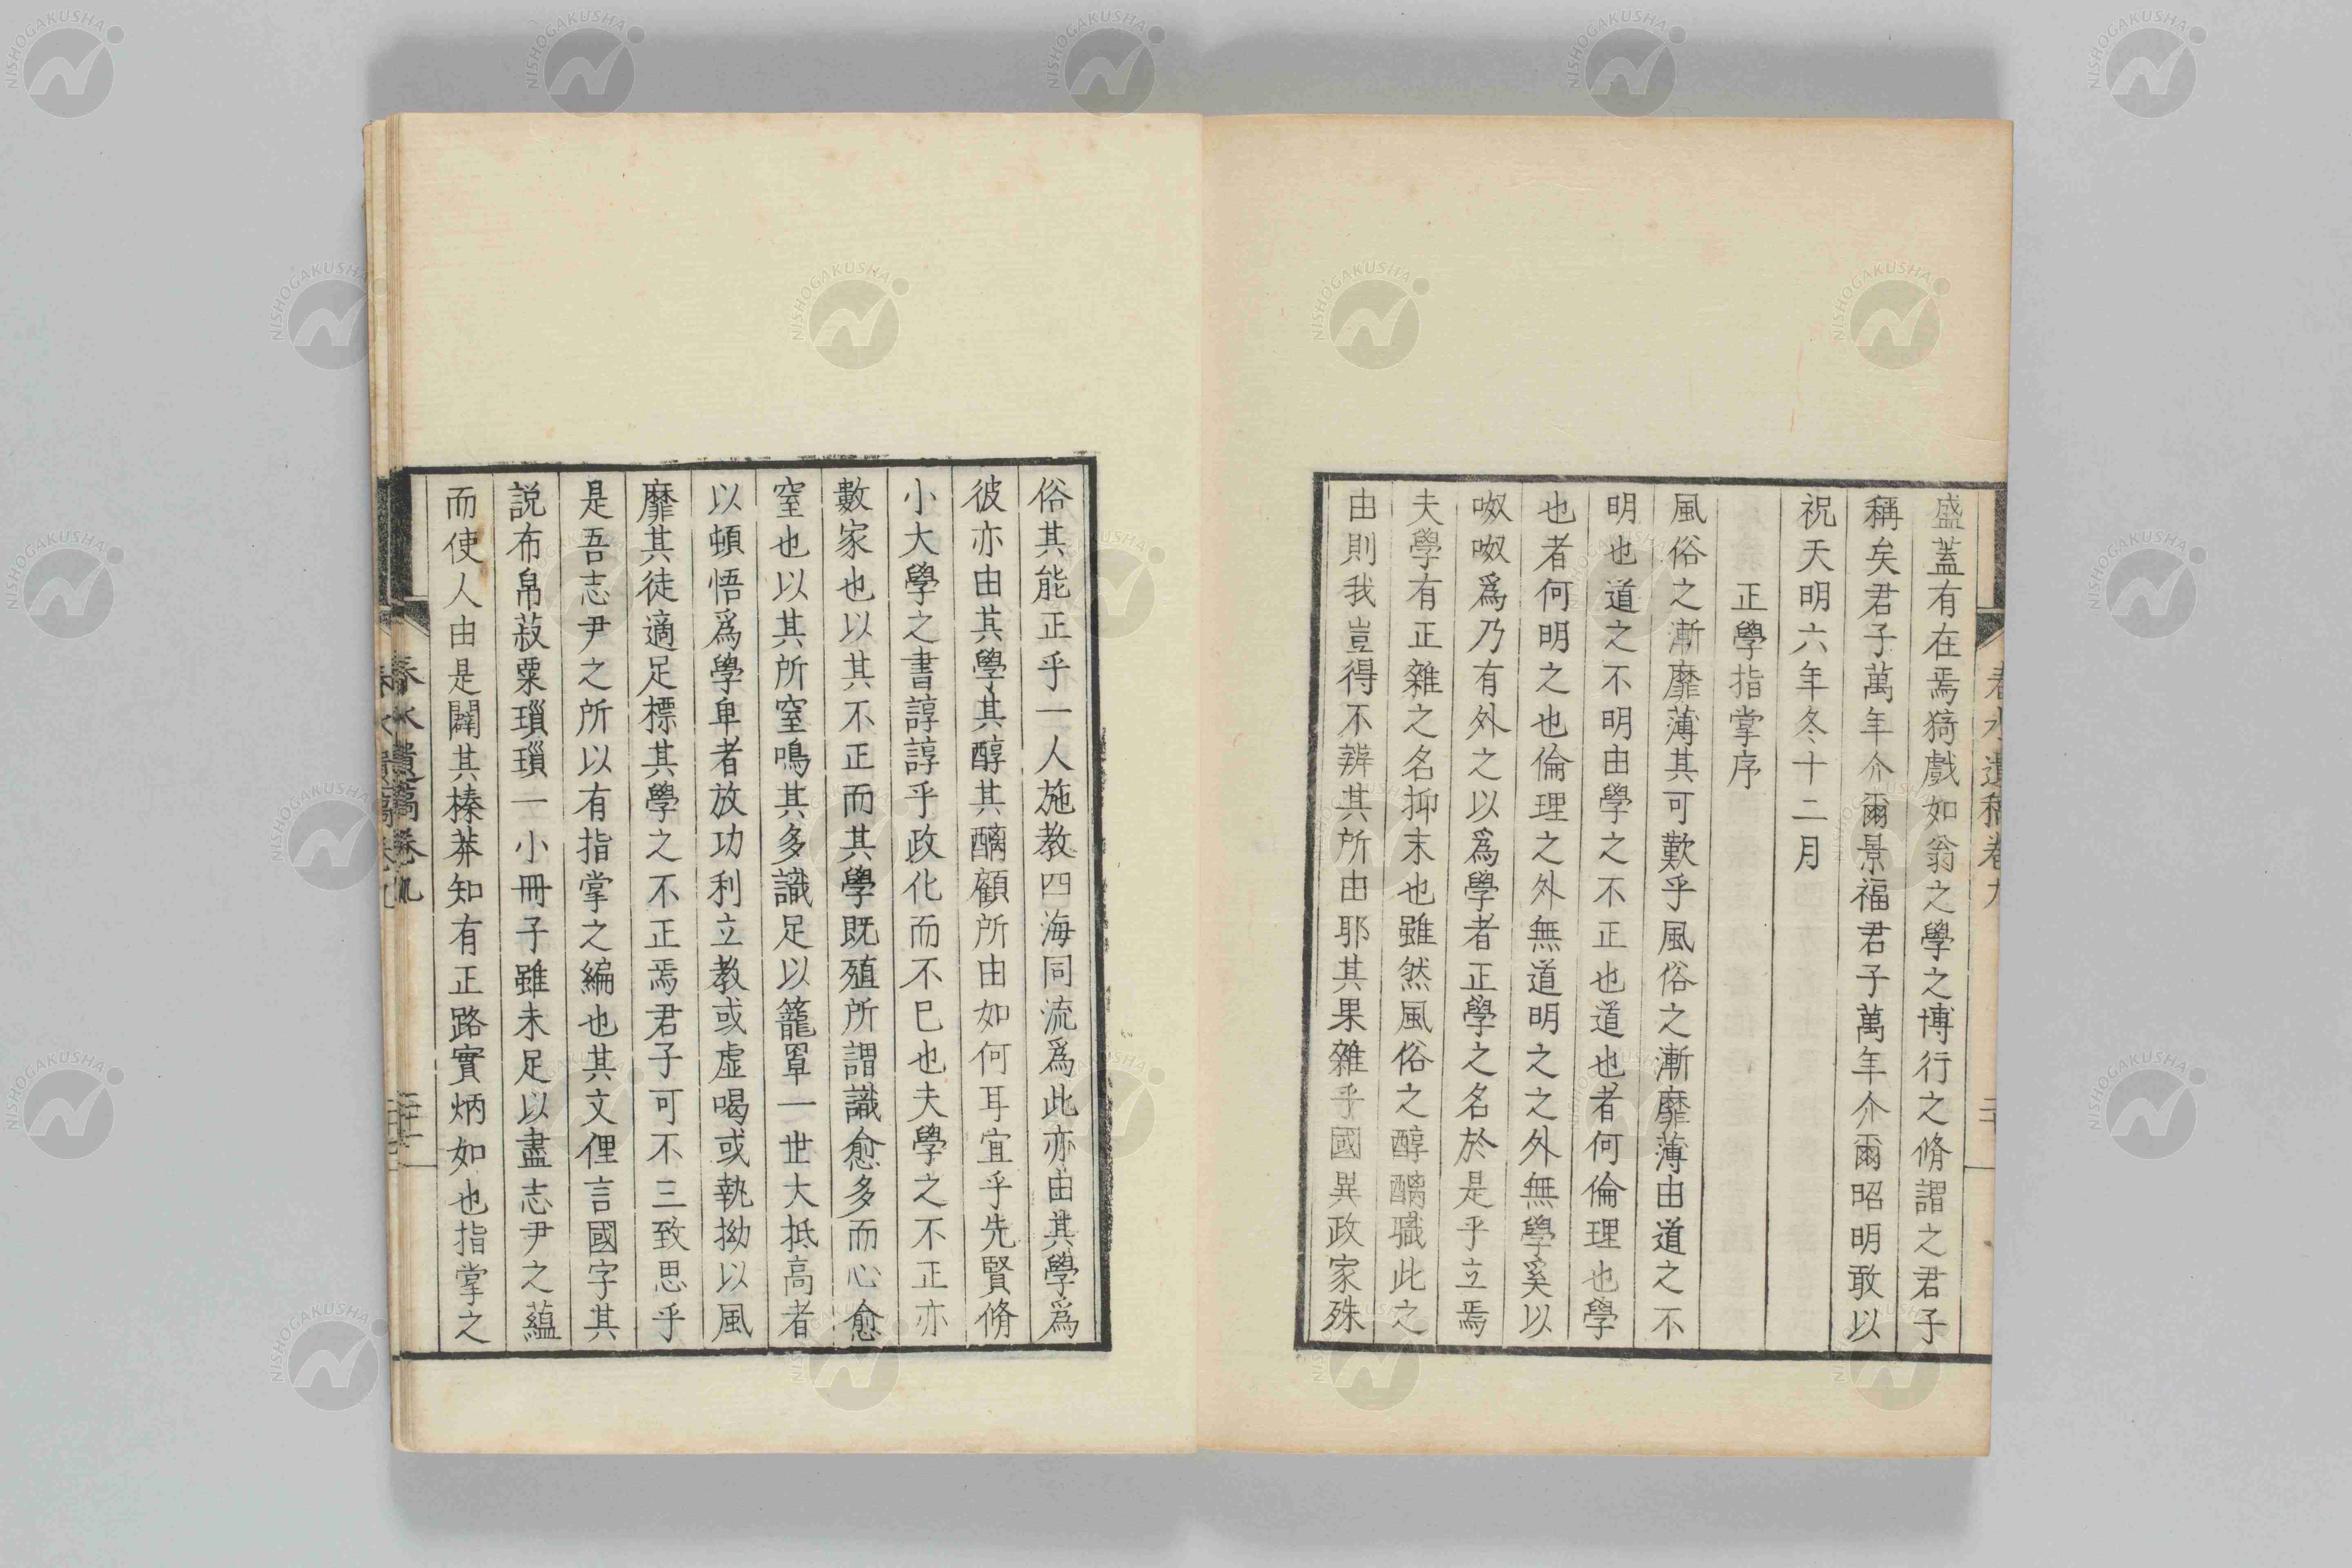 盛蓋有在焉猗戲如翁之學之博行之脩謂之君子
稱矣君子萬年介爾景福君子萬年介爾昭明敢以
祝天明六年冬十二月
正學指掌序
風俗之漸靡薄其可歎乎風俗之漸靡薄由道之不
明也道之不明由學之不正也道也者何倫理也學
也者何明之也倫理之外無道明之之外無學奚以
呶呶爲乃有外之以爲學者正學之名於是乎立焉
夫學有正雜之名抑末也雖然風俗之醇醨職此之
由則我豈得不辨其所由耶其果雜乎國異政家殊
俗其能正乎一人施教四海同流爲此亦由其學爲
彼亦由其學其醇其醨顧所由如何耳宜乎先賢脩
小大學之書諄諄乎政化而不巳也夫學之不正亦
數家也以其不正而其學既殖所謂識愈多而心愈
窒也以其所窒鳴其多識足以籠罩一世大抵高者
以頓悟爲學卑者放功利立教或虛喝或執拗以風
靡其徒適足標其學之不正焉君子可不三致思乎
是吾志尹之所以有指掌之編也其文俚言國字其
説布帛菽粟瑣瑣一小冊子雖未足以盡志尹之蘊
而使人由是闢其榛莽知有正路實炳如也指掌之
春水遺稿卷九
NISHOGAKUSHA